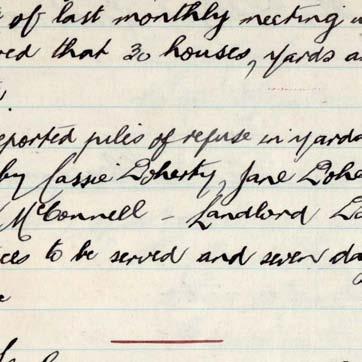 of last monthly meeting
that 30 houses, yards
reported piles of refuse in yards
by Cassie Doherty, Jane
McConnell – Landlord
to be served and seven